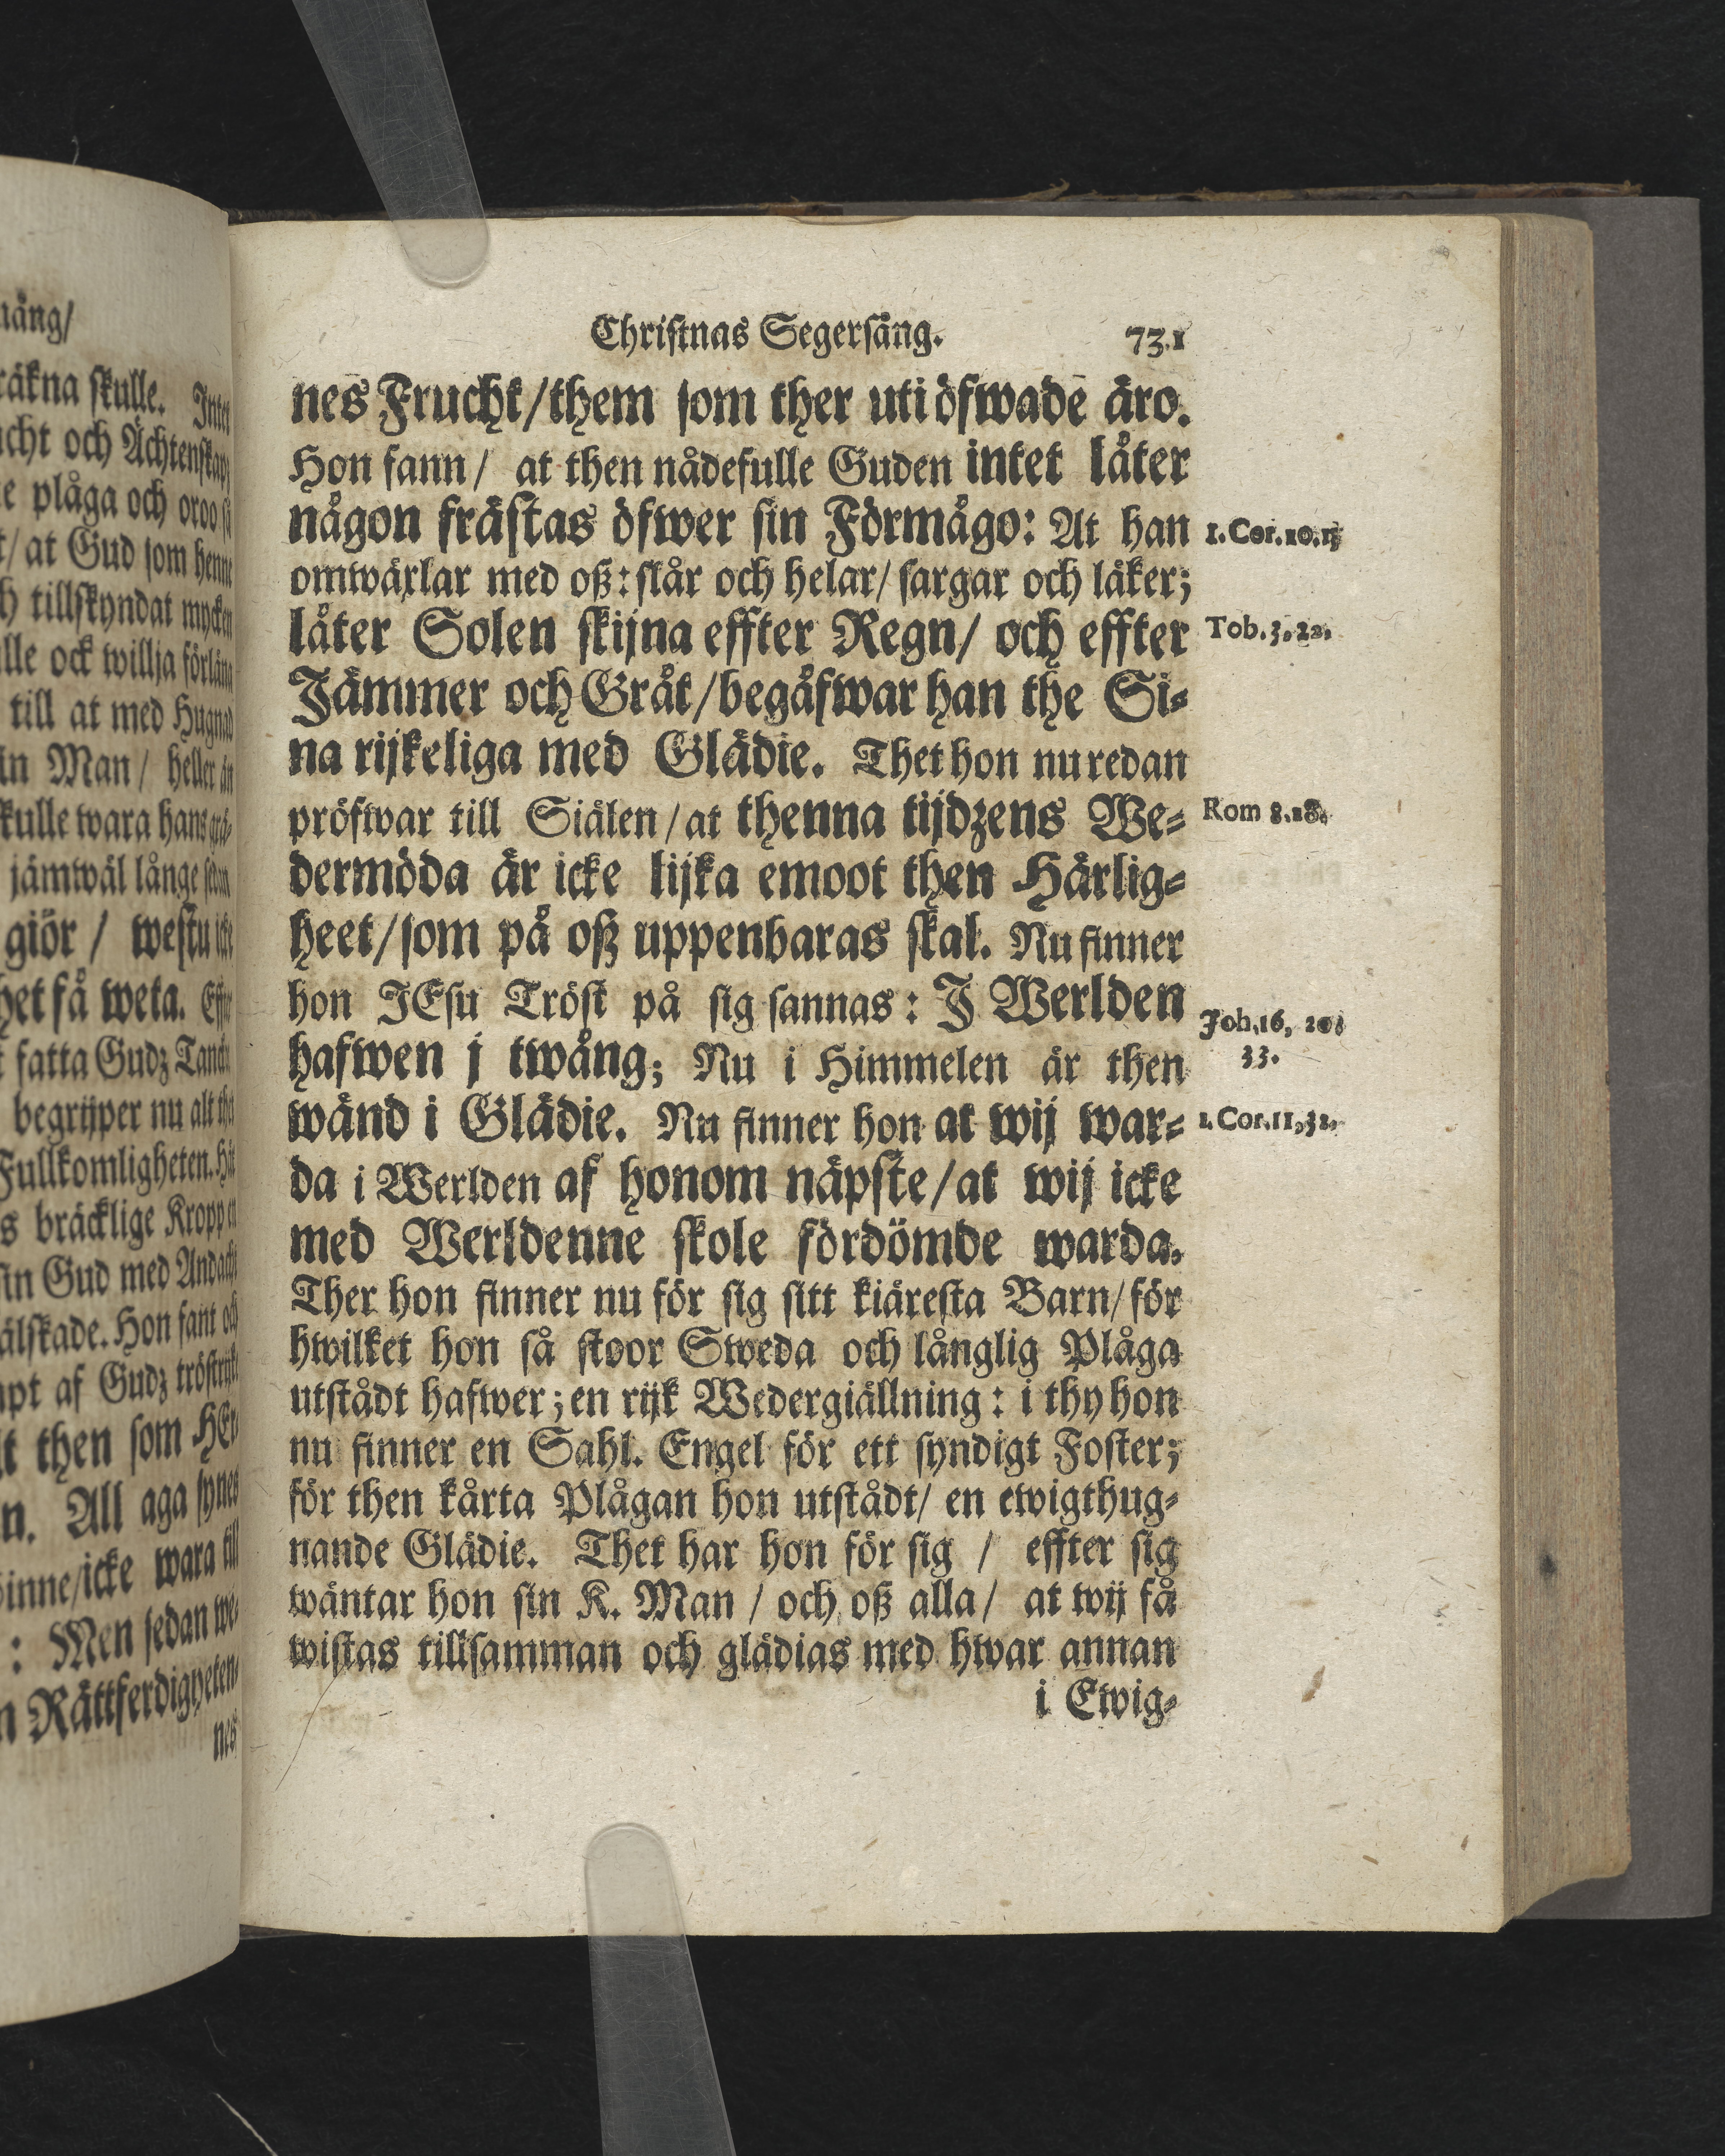 näng/
räkna skulle. Intet
ucht och Ächtenskap
e plåga och oroo så
t/ at Gud som henne
h tillskyndat mycken
lle ock willja förläna
till at med Hugnad
in Man / heller än
kulle wara hans
jämwäl länge sedan
giör / westu icke
het få weta. Effter
fatta Gudz
begrijper nu alt the
Fullkomligheten. Här
s bräcklige Kropp en
in Gud med Andacht
älskade. Hon fant och
npt af Gudz
it then som HEr
n. All aga synes
inne/icke wara till
: Men sedan we-
n Rättferdigheten-
nes
Christnas Segersång. 73.1
nes Frucht/them som ther uti öfwade äro.
Hon fann/ at then nådefulle Guden intet låter
någon frästas öfwer sin Förmågo: At han
1. Cor. 10.13
omwäxlar med oß: slår och helar/ sargar och läker;
låter Solen skijna effter Regn/ och effter
Tob. 3, 22.
Jämmer och Gråt/begåfwar han the Si-
na rijkeliga med Glädie. Thet hon nu redan
pröfwar till Siälen/at thenna tijdzens We-
Rom 8.18.
dermöda är icke lijka emoot then Härlig-
heet/som på oß uppenbaras skal. Nu finner
hon JEsu Tröst på sig sannas: J Werlden
Joh.16, 20.
hafwen j twång; Nu i Himmelen är then
33.
wänd i Glädie. Nu finner hon at wij war-
1. Cor.11,32.
da i Werlden af honom näpste/at wij icke
med Werldenne skole fördömde warda.
Ther hon finner nu för sig sitt kiäresta Barn/för
hwilket hon så stoor Sweda och långlig Plåga
utstådt hafwer; en rijk Wedergiällning: i thy hon
nu finner en Sahl. Engel för ett syndigt Foster;
för then kårta Plågan hon utstådt/ en ewigthug-
nande Glädie. Thet har hon för sig / effter sig
wäntar hon sin K. Man / och oß alla/ at wij få
wistas tillsamman och glädias med hwar annan
i Ewig-